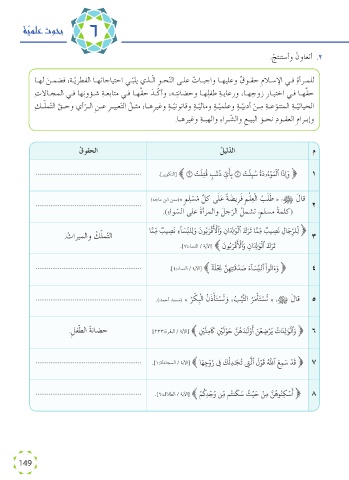 بحوث علميّة
٦
٢. أتعاونُ وأستنتجُ:
للمرأةِ في الإسلامِ حقوقٌ وعليها واجباتٌ على النّحوِ الّذي يلبّي احتياجاتِها الفطريّة، فضمنَ لها
حقَّها في اختيارِ زوجِها، ورعايةِ طفلِها وحضانتِه، وأكّدَ حقَّها في متابعةِ شؤونِها في المجالاتِ
الحياتيّةِ المتنوّعةِ منْ أدبيّةٍ وعلميّةٍ وماليّةٍ وقانونيّةٍ وغيرِها؛ مثلُ التّعبيرِ عنِ الرّأي وحقِّ التّملّكِ
وإبرامِ العقودِ نحوَ البيعِ والشّراءِ والهبةِ وغيرِها.
م الدّليلُ الحقوقُ
١ ﴿وَإِذَا ٱلْمَوْءُۥدَةُ سُئِلَتْ ٨ بِأَيِّ ذَنۢبٍ قُتِلَتْ ٩﴾ [التكوير].
٢ قالَ ﷺ: «طَلَبُ الْعِلْمِ فَرِيضَةٌ عَلَى كُلِّ مُسْلِمٍ» (سنن ابن ماجه)
(كلمةُ مسلمٍ، تشملُ الرّجلَ والمرأةَ على السّواءِ).
٣ ﴿لِّلرِّجَالِ نَصِيبٌ مِّمَّا تَرَكَ ٱلْوَٰلِدَانِ وَٱلْأَقْرَبُونَ وَلِلنِّسَآءِ نَصِيبٌ مِّمَّا
تَرَكَ ٱلْوَٰلِدَانِ وَٱلْأَقْرَبُونَ﴾ [الآية / النساء:٧]. التّملّكُ والميراثُ.
٤ ﴿وَءَاتُوا۟ ٱلنِّسَآءَ صَدُقَٰتِهِنَّ نِحْلَةً﴾ [الآية / النساء:٤].
٥ قالَ ﷺ: «تُسْتَأْمَرُ الثَّيِّبُ، وَتُسْتَأْذَنُ الْبِكْرُ» (مسند أحمد).
٦ ﴿وَٱلْوَٰلِدَٰتُ يُرْضِعْنَ أَوْلَٰدَهُنَّ حَوْلَيْنِ كَامِلَيْنِ﴾ [الآية / البقرة:٢٣٣]. حضانةُ الطّفلِ
٧ ﴿قَدْ سَمِعَ ٱللَّهُ قَوْلَ ٱلَّتِى تُجَٰدِلُكَ فِى زَوْجِهَا﴾ [الآية / المجادلة:١].
٨ ﴿أَسْكِنُوهُنَّ مِنْ حَيْثُ سَكَنتُم مِّن وُجْدِكُمْ﴾ [الآية / الطلاق:٦].
149